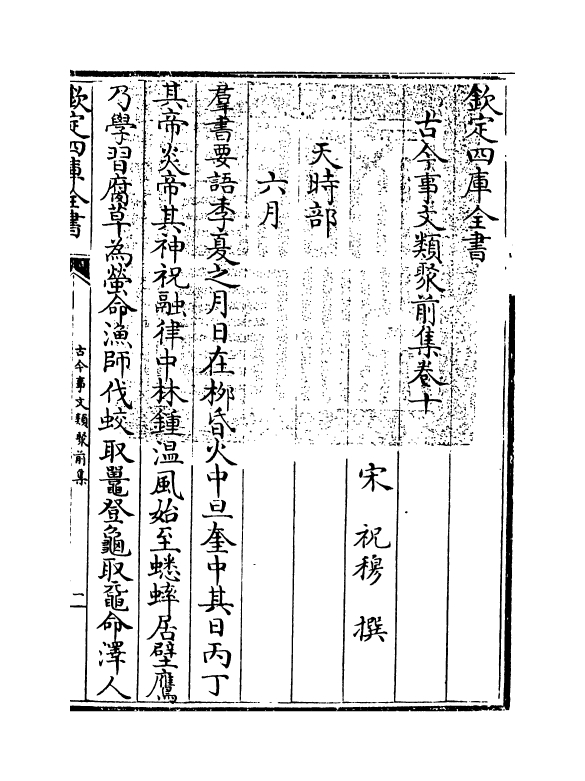 欽定四庫全書
古今事文類聚前集卷十
宋 祝穆 撰
天時部
六月
羣書要語季夏之月日在柳昏火中旦奎中其日丙丁
其帝炎帝其神祝融律中林鍾温風始至蟋蟀居壁鷹
乃學習腐草為螢命漁師伐蛟取鼉登龜取黿命澤人
欽定四庫全書
古今事文類聚前集
二